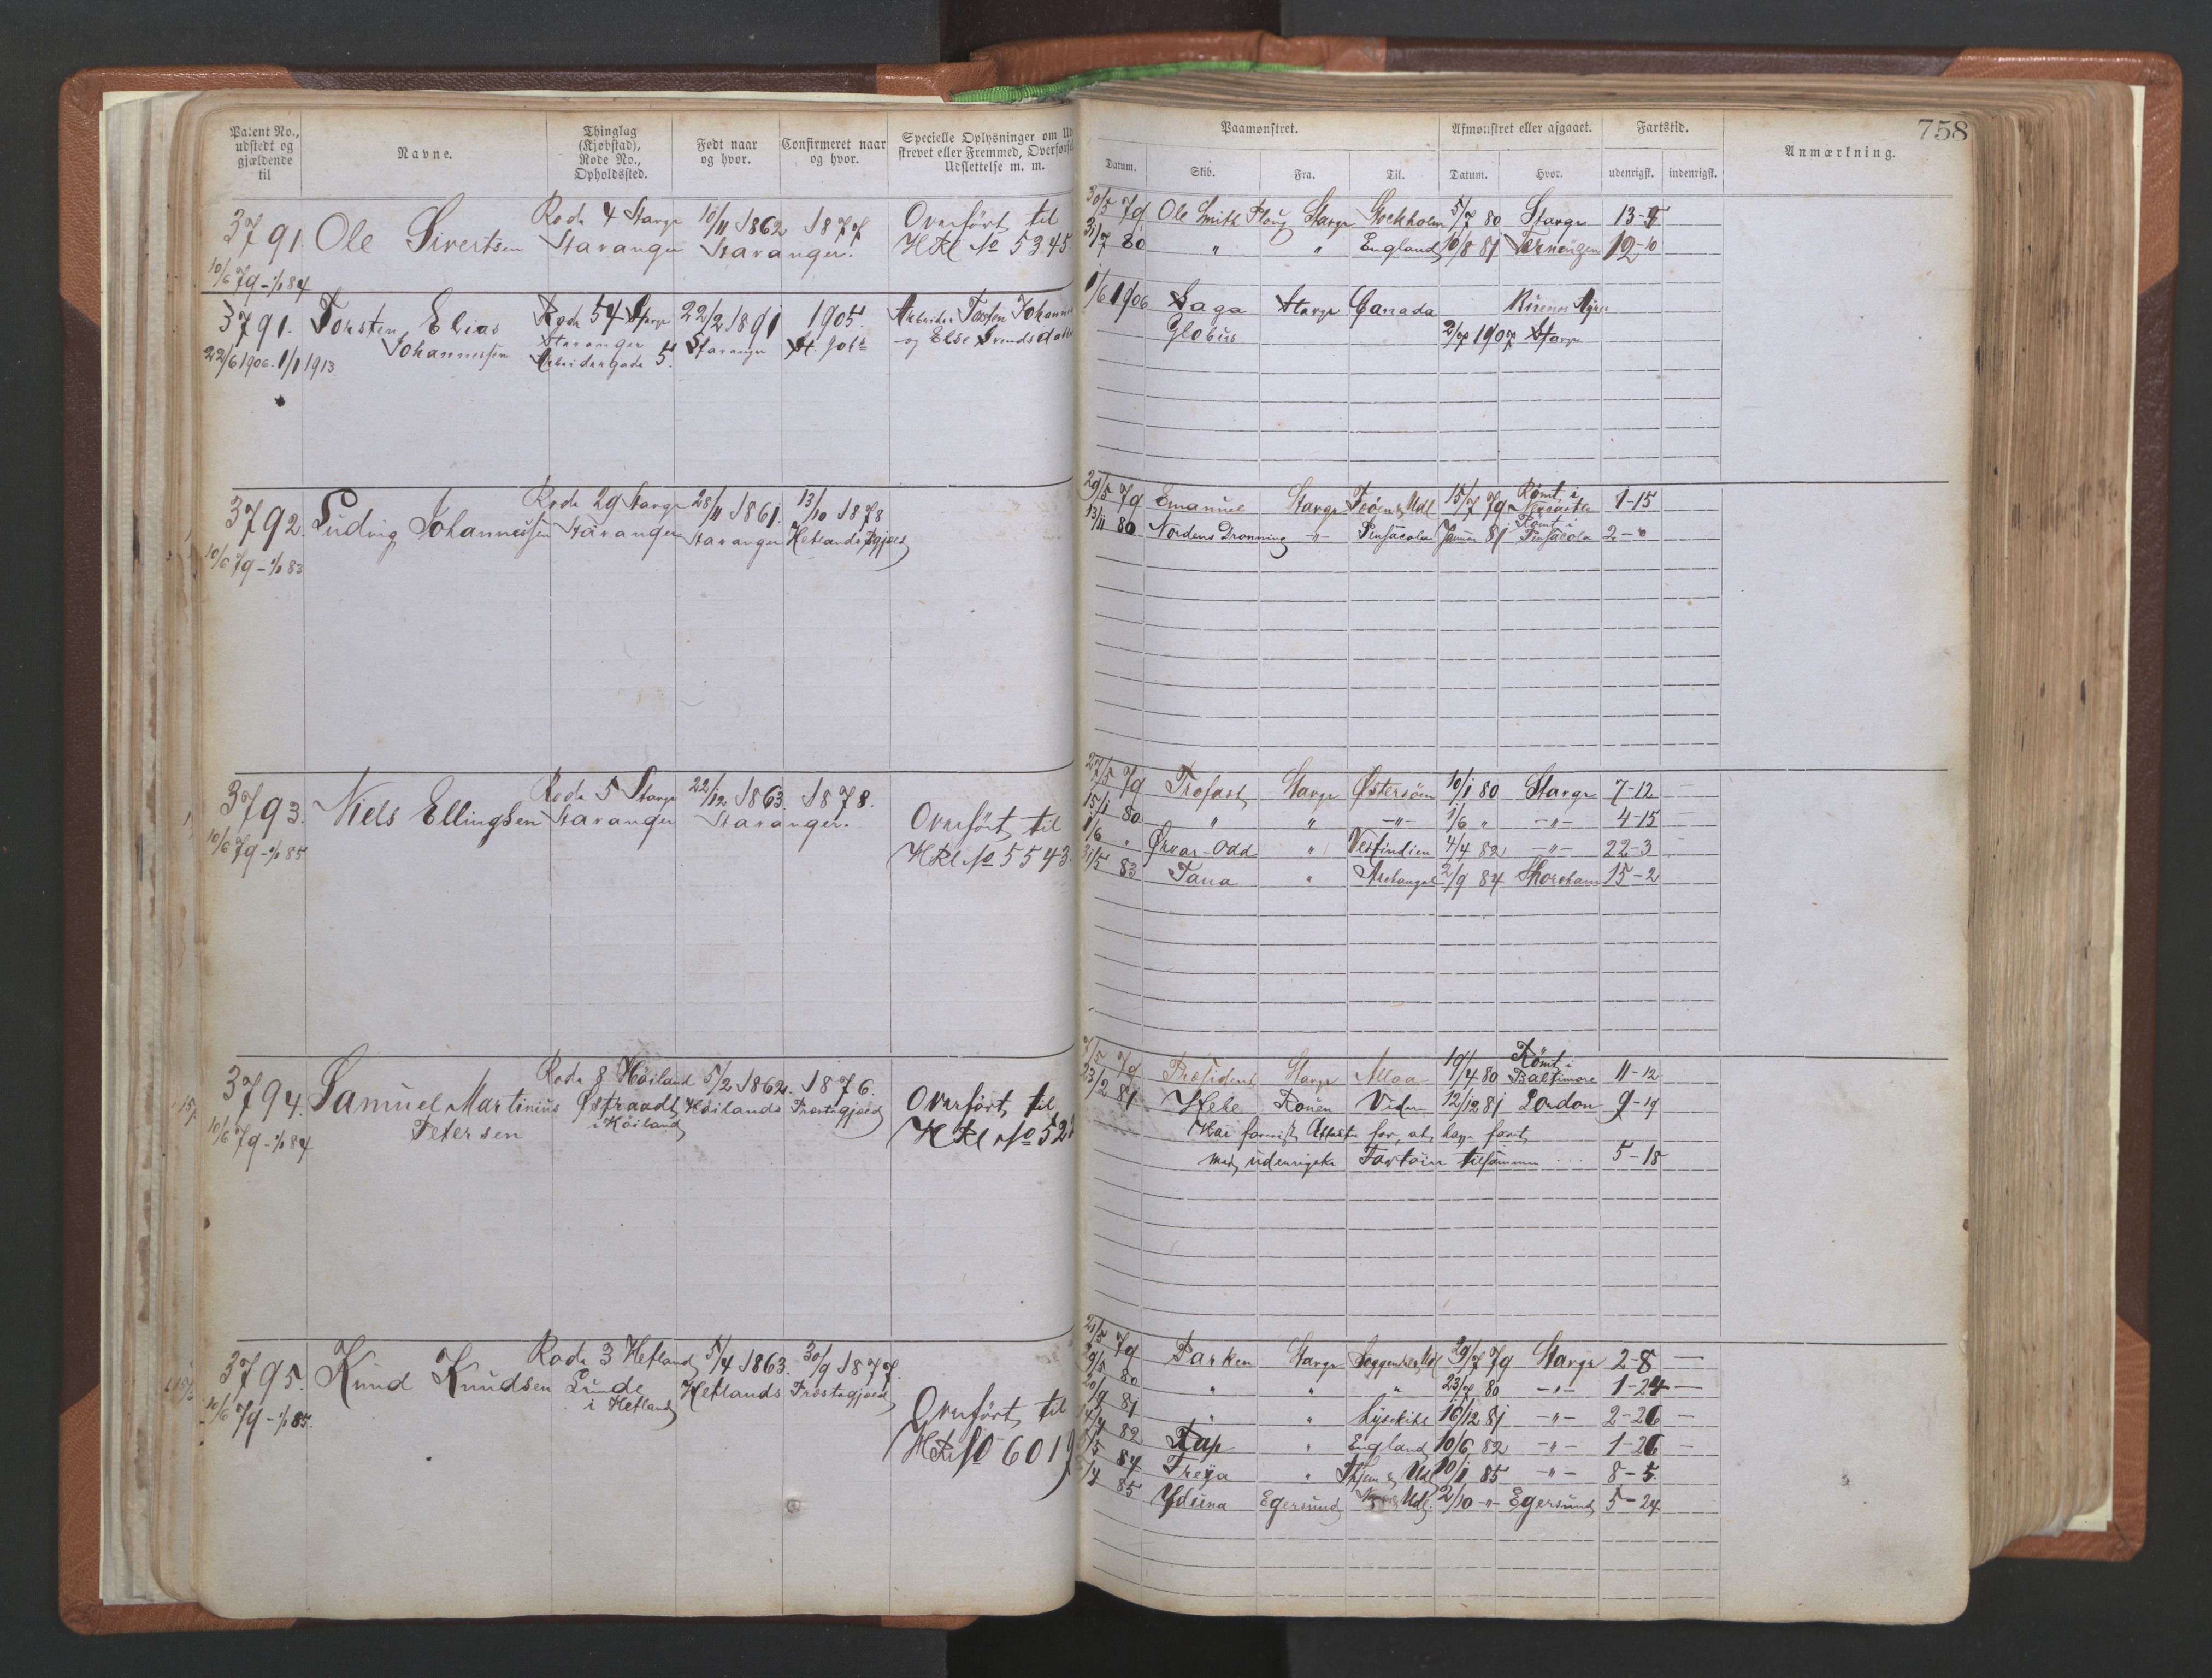 758
Patent No., udstedt og gjældende til
Navne.
Thinglag (Kjøbstad), Rode No., Opholdssted.
Født naar og hvor.
Confirmeret naar og hvor.
Specielle Oplysninger om
skrevet eller Fremmed, Overførsel
Udslettelse m. m.
Paamønstret.
Afmønstret eller afgaaet.
Fartstid.
Anmærkning.
Datum. Skib. Fra. Til. Datum. Hvor. udenrigsk. indenrigsk.
3791. Ole Sivertsen Rode 4 Stavgr 10/11 1862 1877 Overført til
Stavanger Stavanger. HRl No 5345
10/6 79 - 1/1 84
30/5 79 Ole Smith Ploug Stavgr Stockholm 5/7 80 Stavgr 13-5
31/7 80 " " England 10/8 81 12-10
3791. Torsten Elias Rode 54 Stavgr 22/2 1891 1905. Arbeider Torsten Johann
Johannessen Stavanger Stavanger St. Joh. og Else Svendsdatter
22/6 1906. 1/1 1913 Arbeidergade 5.
1/6 1906 Saga Stavgr Canada Buenos Ayres
Globus 2/7 1907 Stavgr
3792. Ludvig Johannessen Rode 29 Stavgr 28/11 1861. 13/10 1878
Stavanger Stavanger Hetlands Pgjæld
10/6 79 - 1/1 83
29/5 79 Emanuel Stavgr Udl 15/7 79 Rømt i 1-15
13/11 80 Nordens Dronning -"- Pensacola Januar 81 Rømt i Pensacola 2-0
3793. Niels Ellingsen Rode 5 Stavgr 22/12 1863. 1878.
Stavanger Stavanger. Overført til
10/6 79 - 1/1 85 HRl No 5543.
27/5 79 Trofast Stavgr Østersøen 10/1 80 Stavgr 7-12
15/1 80 " " -"- 1/6 " -"- 4-15
1/6 " Ørvar-Odd " Vestindien 4/4 82 -"- 22-3
31/5 83 Tana " Archangel 2/9 84 Shoreham 15-2
3794. Samuel Martinius Rode 8 Høiland 5/2 1862. 1876. Overført til
Petersen Østraadt i Høiland Høilands Præstegjæld HRl No 52
10/6 79 - 1/1 84
79 President Stavgr 19/4 80 Rømt i Baltimore 11-12
23/2 81 Hebe Rouen Viden 12/12 81 London 9-19
Har forevist Attester for, at have faret
med udenrigske Fartøier tilsammen ... 5-18
3795. Knud Knudsen Rode 3 Hetland 5/4 1863. 30/9 1877.
Lunde i Hetland Hetlands Præstegjæld Overført til
10/6 79 - 1/1 85. HRl No 6019
21/5 79 Parken Stavgr Udl 29/7 79 Stavgr 2-8
29/5 80 " " " 23/7 80 -"- 1-24
20/9 81 " " Lysekihl 16/12 81 -"- 2-26
14/4 82 Rap " England 10/6 82 -"- 1-26
/5 84 Freya " Udl 10/1 85 -"- 8-5.
/4 85 Yduna Egersund Udl. 2/10 -"- Egersund 5-24